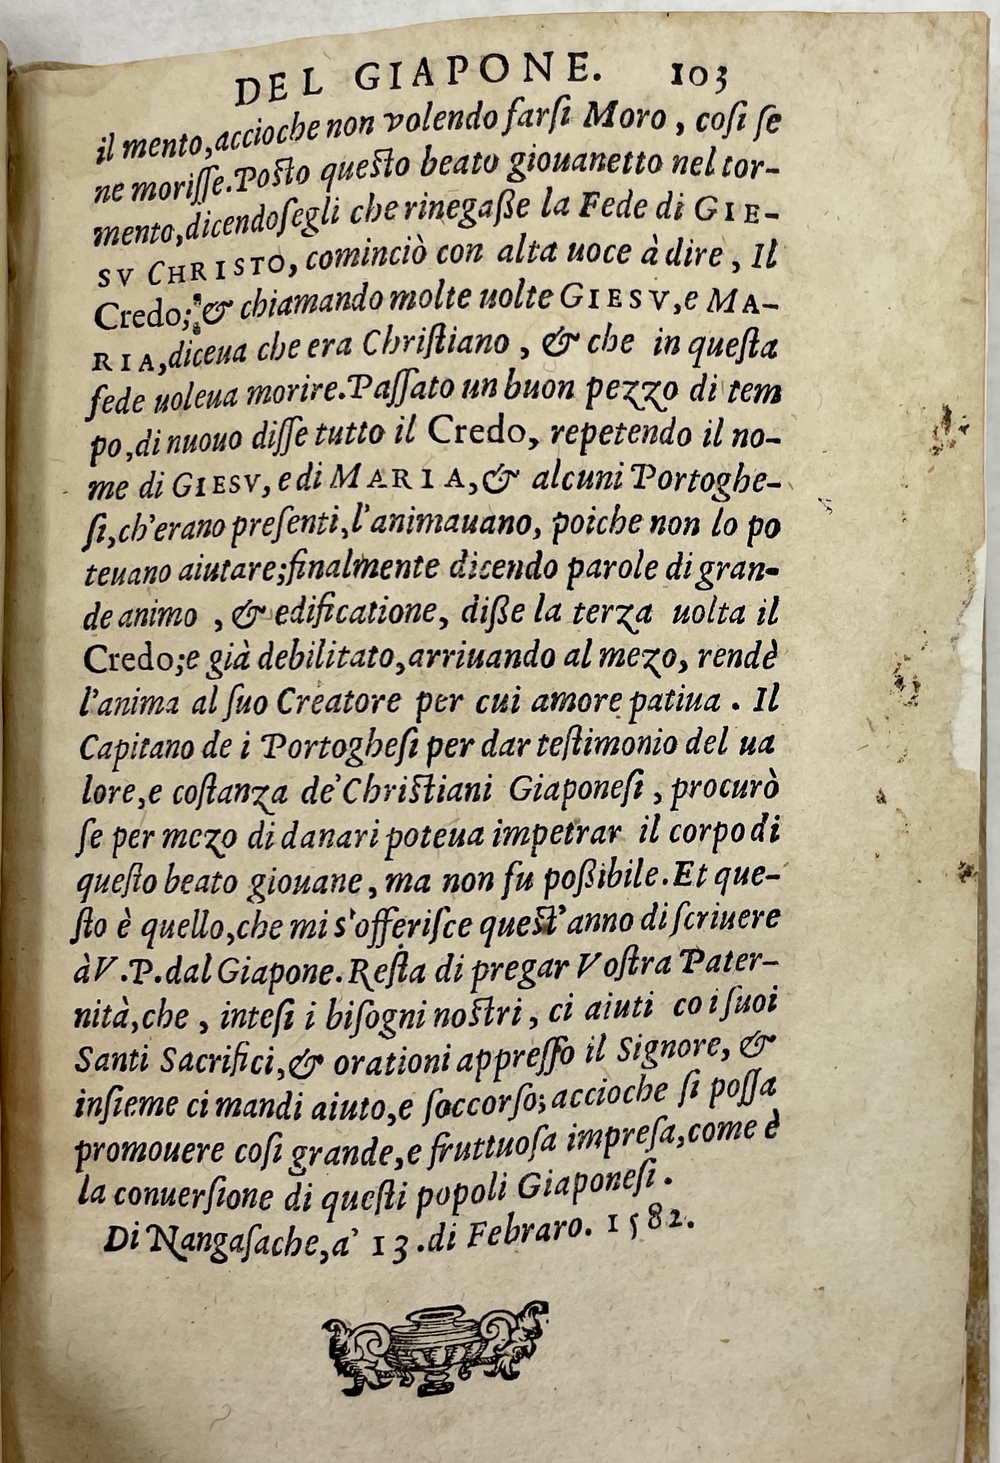 DEL GIAPONE. 103
il mento, accioche non volendo farſi Moro, coſi ſe
ne moriſſe. Poſto queſto beato giouanetto nel tor-
mento, dicendoſegli che rinegaße la Fede di GIE-
SV CHRISTO, cominciò con alta uoce à dire, Il
Credo; & chiamando molte uolte GIESV, e MA-
RIA, diceua che era Chriſtiano, & che in queſta
fede uoleua morire. Paſſato un buon pezzo di tem
po, di nuouo diſſe tutto il Credo, repetendo il no-
me di GIESV, e di MARIA, & alcuni Portoghe-
ſi, ch'erano preſenti, l'animauano, poiche non lo po
teuano aiutare; finalmente dicendo parole di gran-
de animo, & edificatione, diße la terza uolta il
Credo; e già debilitato, arriuando al mezo, rendè
l'anima al ſuo Creatore per cui amore patiua. Il
Capitano de i Portogheſi per dar teſtimonio del ua
lore, e coſtanza de' Chriſtiani Giaponeſi, procurò
ſe per mezo di danari poteua impetrar il corpo di
queſto beato giouane, ma non fu poßibile. Et que-
ſto è quello, che mi s'offeriſce queſt'anno di ſcriuere
à V. P. dal Giapone. Reſta di pregar Voſtra Pater-
nità, che, inteſi i biſogni noſtri, ci aiuti co i ſuoi
Santi Sacrifici, & orationi appreſſo il Signore, &
inſieme ci mandi aiuto, e ſoccorſo; accioche ſi poſſa
promouere coſi grande, e fruttuoſa impreſa, come è
la conuerſione di queſti popoli Giaponeſi.
Di Nangaſache, a' 13. di Febraro. 1582.